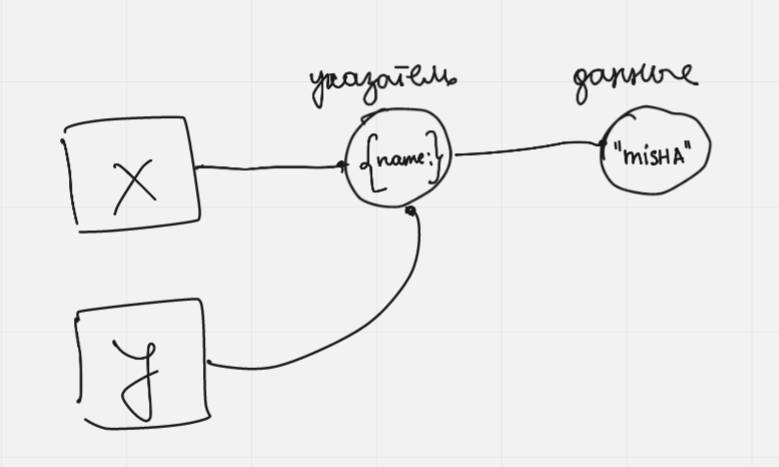 указатель
данные
x
{name:}
"misHA"
y